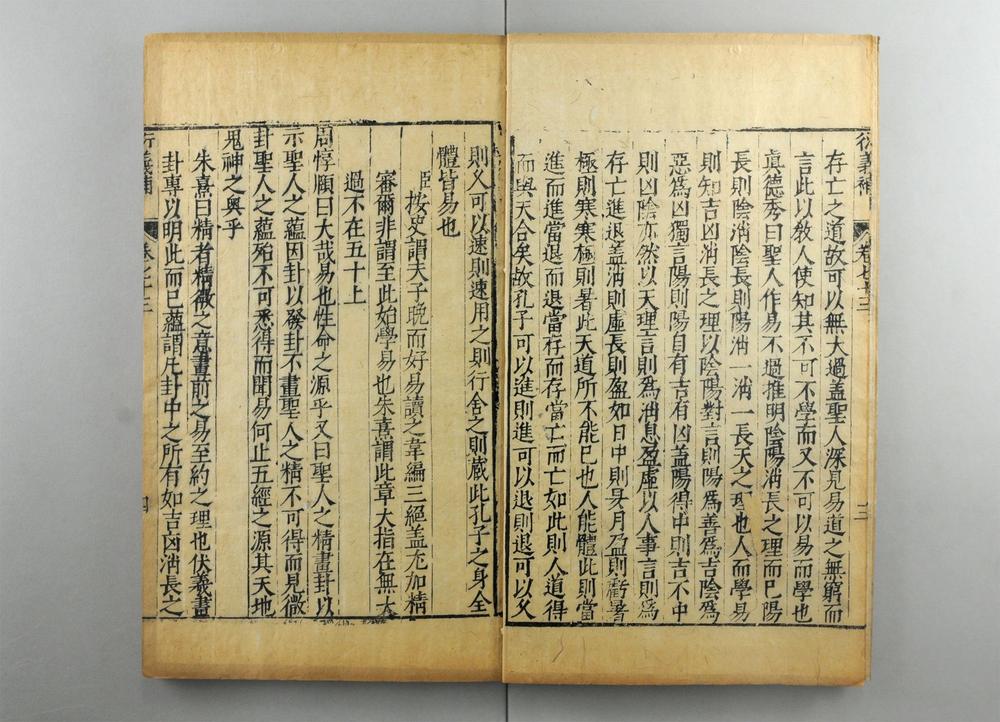 衍義補 卷七十三 三
存亡之道故可以無大過盖聖人深見易道之無窮而
言此以敎人使知其不可不學而又不可以易而學也
眞德秀曰聖人作易不過推明陰陽消長之理而巳陽
長則陰消陰長則陽消一消一長天之理也人而學易
則知吉凶消長之理以陰陽對言則陽爲善爲吉陰爲
惡爲凶獨言陽則陽自有吉有凶盖陽得中則吉不中
則凶陰亦然以天理言則爲消息盈虛以人事言則爲
存亡進退盖消則虛長則盈如日中則昃月盈則虧暑
極則寒寒極則暑此天道所不能巳也人能體此則當
進而進當退而退當存而存當亡而亡如此則人道得
而與天合矣故孔子可以進則進可以退則退可以久
則久可以速則速用之則行舍之則蔵此孔子之身全
體皆易也
臣按史謂天子晚而好易讀之韋編三絕盖尤加精
審爾非謂至此始學易也朱熹謂此章大指在無大
過不在五十上
周惇頤曰大哉易也性命之源乎又曰聖人之精畫卦以
示聖人之蘊因卦以發卦不畫聖人之精不可得而見微
卦聖人之蘊殆不可悉得而聞易何止五經之源其天地
鬼神之奥乎
朱熹曰精者精微之意畫前之易至約之理也伏羲畫
卦專以明此而巳蘊謂凡卦中之所有如吉凶消長之
衍義補 卷七十三 四